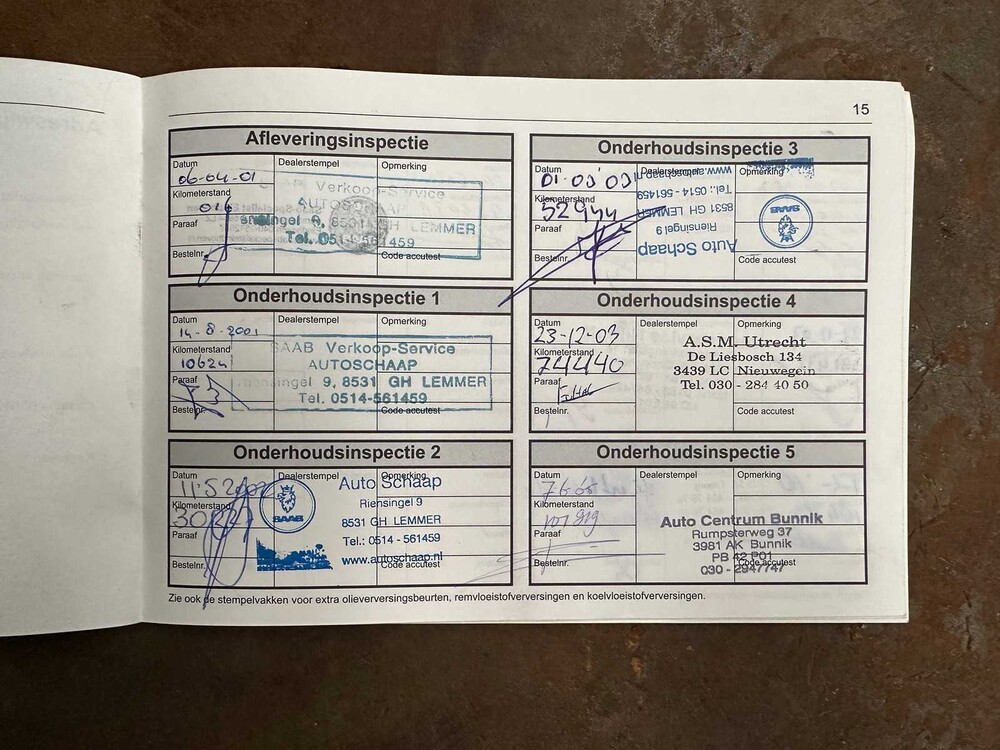 15
Afleveringsinspectie
Datum Dealerstempel Opmerking
06-04-01
Kilometerstand
016
Paraaf
Bestelnr. Code accutest
SAAB Verkoop-Service
AUTOSCHAAP
9, 8531 GH LEMMER
Tel. 0514-561459
Onderhoudsinspectie 1
Datum Dealerstempel Opmerking
14-8-2001
Kilometerstand
10624
Paraaf
Bestelnr. Code accutest
SAAB Verkoop-Service
AUTOSCHAAP
9, 8531 GH LEMMER
Tel. 0514-561459
Onderhoudsinspectie 2
Datum Dealerstempel Opmerking
Kilometerstand
Paraaf
Bestelnr. Code accutest
SAAB
Auto Schaap
Riensingel 9
8531 GH LEMMER
Tel.: 0514 - 561459
www.autoschaap.nl
Onderhoudsinspectie 3
Datum Dealerstempel Opmerking
Kilometerstand
52944
Paraaf
Bestelnr. Code accutest
SAAB
Auto Schaap
Riensingel 9
8531 GH LEMMER
Tel.: 0514 - 561459
www.autoschaap.nl
Onderhoudsinspectie 4
Datum Dealerstempel Opmerking
23-12-03
Kilometerstand
74440
Paraaf
Bestelnr. Code accutest
A.S.M. Utrecht
De Liesbosch 134
3439 LC Nieuwegein
Tel. 030 - 284 40 50
Onderhoudsinspectie 5
Datum Dealerstempel Opmerking
Kilometerstand
Paraaf
Bestelnr. Code accutest
Auto Centrum Bunnik
Rumpsterweg 37
3981 AK Bunnik
PB 42 P01
030 - 2947747
Zie ook de stempelvakken voor extra olieverversingsbeurten, remvloeistofverversingen en koelvloeistofverversingen.